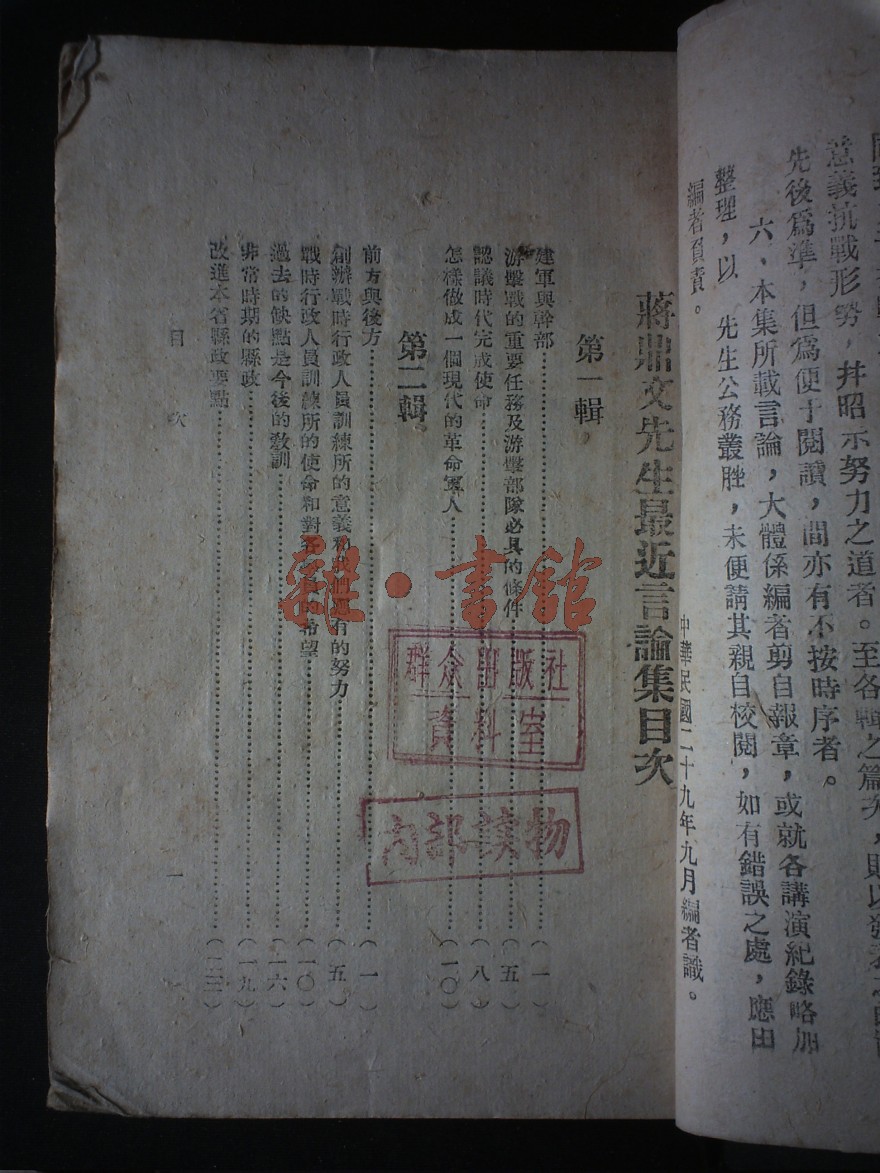 意義抗戰形勢，幷昭示努力之道者。至各輯之篇次，則以發表之
先後爲準，但爲便于閱讀，間亦有不按時序者。
六、本集所載言論，大體係編者剪自報章，或就各講演紀錄略加
整理，以　先生公務叢脞，未便請其親自校閱，如有錯誤之處，應由
編者負責。
中華民國二十九年九月編者識。
蔣鼎文先生最近言論集目次
第一輯
建軍與幹部……（一）
游擊戰的重要任務及游擊部隊必具的條件……（五）
認識時代完成使命……（八）
怎樣做成一個現代的革命軍人……（一〇）
第二輯
前方與後方……（一）
創辦戰時行政人員訓練所的意義和我們應有的努力……（五）
戰時行政人員訓練所的使命和對各學員的希望……（一〇）
過去的缺點是今後的教訓……（一六）
非常時期的縣政……（一九）
改進本省縣政要點……（二三）
目次
一
群众出版社
資料室
內部讀物
雜·書館